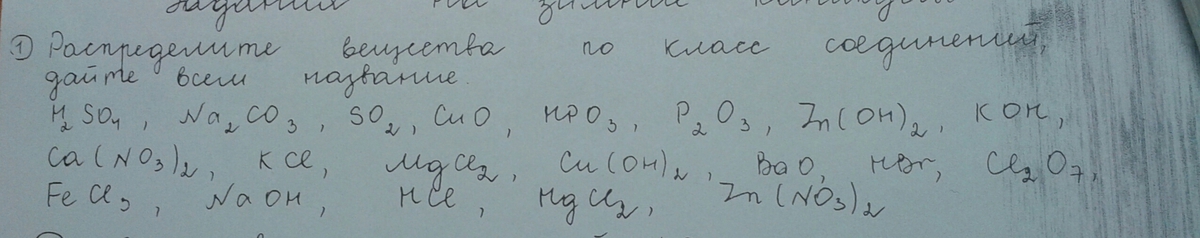 Задания на зимние каникулы
① Распределите вещества по класс соединений,
дайте всем название.
H₂SO₄, Na₂CO₃, SO₂, CuO, HPO₃, P₂O₃, Zn(OH)₂, KOH,
Ca(NO₃)₂, KCl, MgCl₂, Cu(OH)₂, BaO, HBr, Cl₂O₇,
FeCl₃, NaOH, HCl, HgCl₂, Zn(NO₃)₂